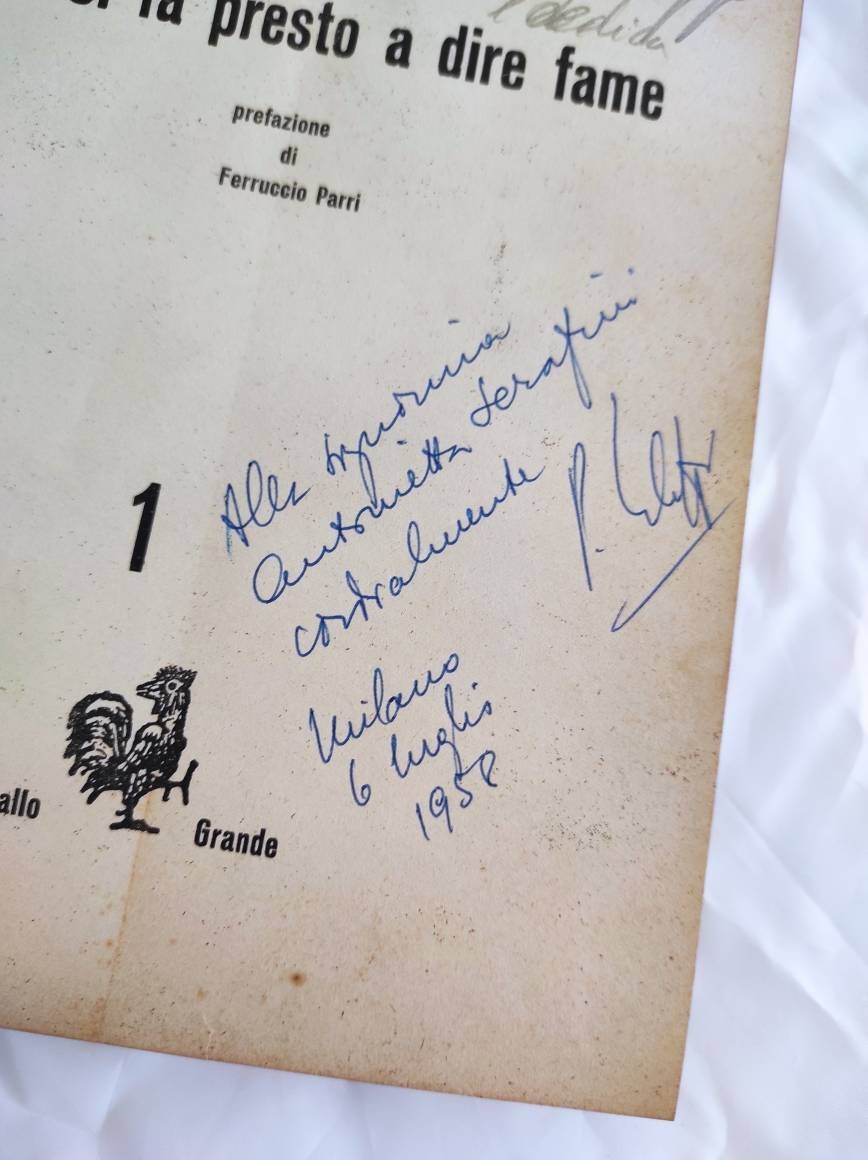 dedica
si fa presto a dire fame
prefazione
di
Ferruccio Parri
Alla signorina
Antonietta Serafini
cordialmente
P.
1
Milano
6 luglio
1958
allo
Grande